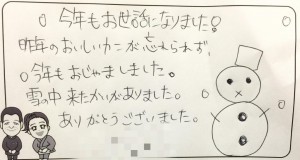 今年もお世話になりました!
昨年のおいしいカニが忘れられず、
今年もおじゃましました。
雪の中来たかいがありました。
ありがとうございました。